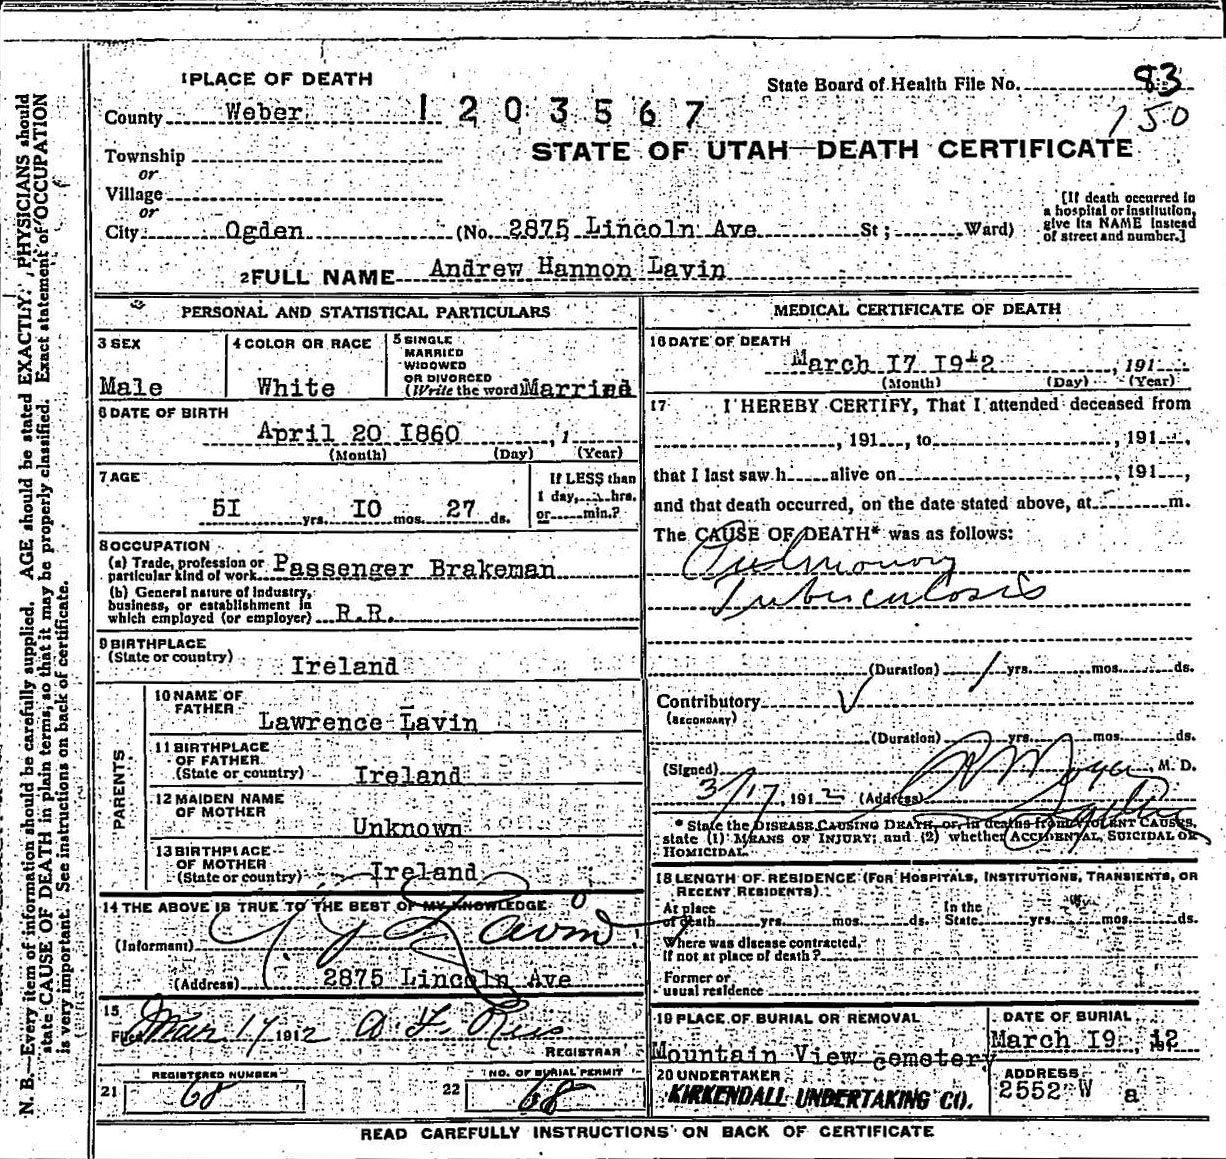 1 PLACE OF DEATH
State Board of Health File No. 83
County Weber 1203567
150
STATE OF UTAH—DEATH CERTIFICATE
Township
or
Village
or
City Ogden (No. 2875 Lincoln Ave St; Ward)
[If death occurred in
a hospital or institution,
give its NAME instead
of street and number.]
2 FULL NAME Andrew Hannon Lavin
PERSONAL AND STATISTICAL PARTICULARS
3 SEX
Male
4 COLOR OR RACE
White
5 SINGLE
MARRIED
WIDOWED
OR DIVORCED
(Write the word) Married
6 DATE OF BIRTH
April 20 1860 , 1
(Month) (Day) (Year)
7 AGE
51 yrs. 10 mos. 27 ds.
If LESS than
1 day, hrs.
or min.?
8 OCCUPATION
(a) Trade, profession or
particular kind of work Passenger Brakeman
(b) General nature of industry,
business, or establishment in
which employed (or employer) R.R.
9 BIRTHPLACE
(State or country) Ireland
PARENTS
10 NAME OF
FATHER Lawrence Lavin
11 BIRTHPLACE
OF FATHER
(State or country) Ireland
12 MAIDEN NAME
OF MOTHER
Unknown
13 BIRTHPLACE
OF MOTHER
(State or country) Ireland
14 THE ABOVE IS TRUE TO THE BEST OF MY KNOWLEDGE
(Informant) Lavin
(Address) 2875 Lincoln Ave
15
Filed Mar 17 1912
REGISTRAR
REGISTERED NUMBER
21 68
NO. OF BURIAL PERMIT
22 68
MEDICAL CERTIFICATE OF DEATH
16 DATE OF DEATH
March 17 1912 , 191
(Month) (Day) (Year)
17 I HEREBY CERTIFY, That I attended deceased from
, 191 , to , 191 ,
that I last saw h alive on , 191 ,
and that death occurred, on the date stated above, at m.
The CAUSE OF DEATH* was as follows:
Pulmonary
Tuberculosis
(Duration) 1 yrs. mos. ds.
Contributory
(SECONDARY)
(Duration) yrs. mos. ds.
(Signed) , M. D.
3/17, 1912 (Address)
* State the DISEASE CAUSING DEATH, or, in deaths from VIOLENT CAUSES,
state (1) MEANS OF INJURY; and (2) whether ACCIDENTAL, SUICIDAL OR
HOMICIDAL.
18 LENGTH OF RESIDENCE (FOR HOSPITALS, INSTITUTIONS, TRANSIENTS, OR
RECENT RESIDENTS)
At place
of death yrs. mos. ds. In the
State yrs. mos. ds.
Where was disease contracted,
If not at place of death?
Former or
usual residence
19 PLACE OF BURIAL OR REMOVAL
Mountain View cemetery
DATE OF BURIAL
March 19, 12
20 UNDERTAKER
KIRKENDALL UNDERTAKING CO.
ADDRESS
2552 W a
READ CAREFULLY INSTRUCTIONS ON BACK OF CERTIFICATE
N. B.—Every item of information should be carefully supplied. AGE should be stated EXACTLY. PHYSICIANS should
state CAUSE OF DEATH in plain terms, so that it may be properly classified. Exact statement of OCCUPATION
is very important. See instructions on back of certificate.